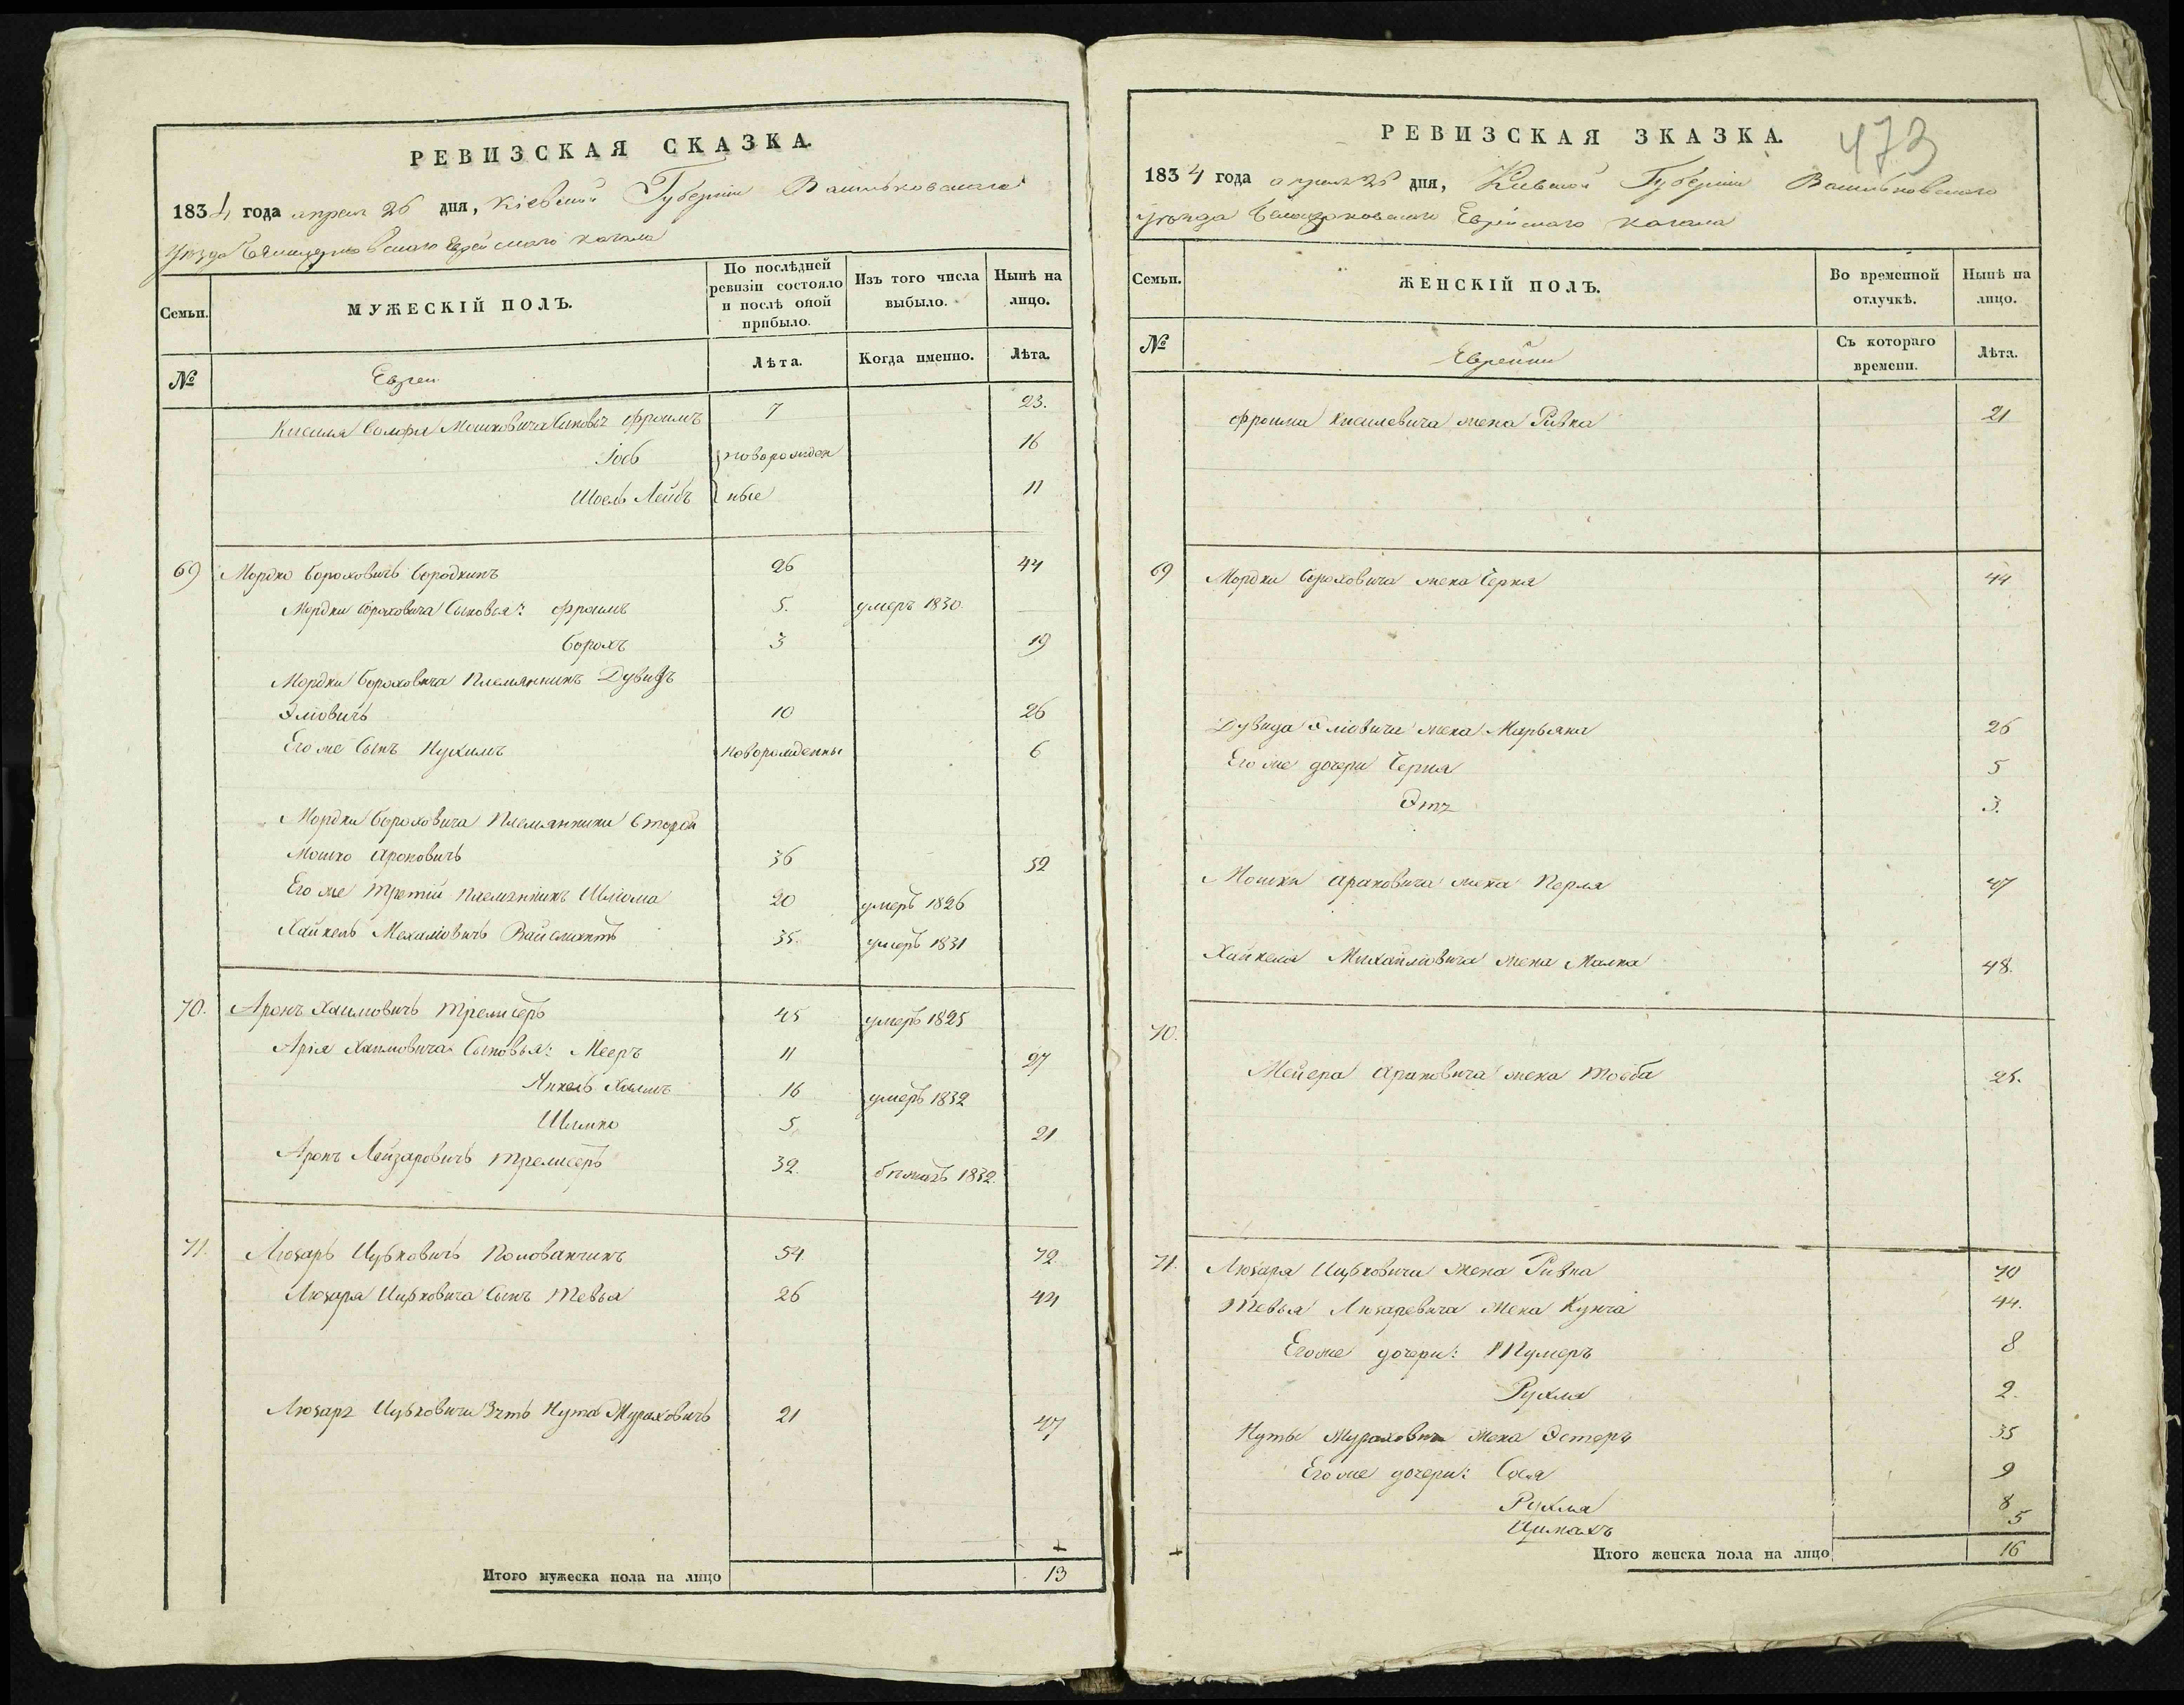 РЕВИЗСКАЯ СКАЗКА.
1834 года апреля 26 дня, Кіевской Губерніи Васильковскаго
Уѣзда Белоцерковскаго Еврейскаго кагала
Семьи.
МУЖЕСКІЙ ПОЛЪ.
По послѣдней ревизіи состояло и послѣ оной прибыло.
Изъ того числа выбыло.
Нынѣ на лицо.
№
Евреи
Лѣта.
Когда именно.
Лѣта.
Кисиля Мошковича Сиковъ Фроимъ 7 23.
Іосъ новорожден 16
Шоель Лейбъ ные 11
69 Мордко Бороховичъ Бородкинъ 26 44
Мордки Бороховича Сыновья: Фроимъ 5. умеръ 1830.
Борохъ 3 19
Мордки Бороховича племянникъ Дувидъ
Эліовичъ 10 26
Его же Сынъ Нухимъ новорожденны 6
Мордки Бороховича племянники второй
Мошко Ароновичъ 36 52
Его же третій племянникъ Шліома 20 умеръ 1826
Хайкель Мехаліовичъ 35. умеръ 1831
70. Аронъ Хаимовичъ Тремисеръ 45 умеръ 1825
Арія Хаимовича Сыновья: Мееръ 11 27
Анкель Хаимъ 16 умеръ 1832
Шимко 5. 21
Аронъ Лейзаровичъ Тремисеръ 32. бѣжалъ 1832.
71. Люзаръ Ицковичъ Полованчикъ 54 72.
Люзаря Ицковича Сынъ Тевья 26 44
Люзаря Ицковича Зять Нута Мураховичъ 21 47
Итого мужеска пола на лицо 13
РЕВИЗСКАЯ ЗКАЗКА.
473
1834 года апреля 26 дня, Кіевской Губерніи Васильковскаго
уѣзда Белоцерковскаго Еврейскаго кагала
Семьи.
ЖЕНСКІЙ ПОЛЪ.
Во временной отлучкѣ.
Нынѣ на лицо.
№
Еврейки
Съ котораго времени.
Лѣта.
Фроима Кисилевича жена Ривка 21
69 Мордки Бороховича жена Черня 44
Дувида Эліовича жена Марьяна 26
Его же дочери Черня 5
Этя 3.
Мошки Ароновича жена Перля 47
Хайкеля Михайліовича жена Малка 48.
70.
Мейера Ароновича жена Тоба 25.
71. Люзаря Ицковича жена Ривка 70
Тевья Люзаревича жена Кунча 44.
Его же дочери: Тумеръ 8
Рухля 2.
Нуты Мураховича жена Эстеръ 35
Его же дочери: Сося 9
Рухля 8
Цимахъ 5
Итого женска пола на лицо 16